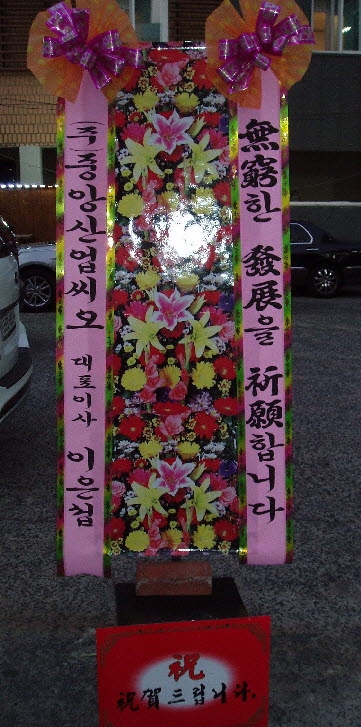 無窮한 發展을 祈願합니다
(주)중앙산업씨오 대표이사 이은섭
祝
祝賀드립니다.